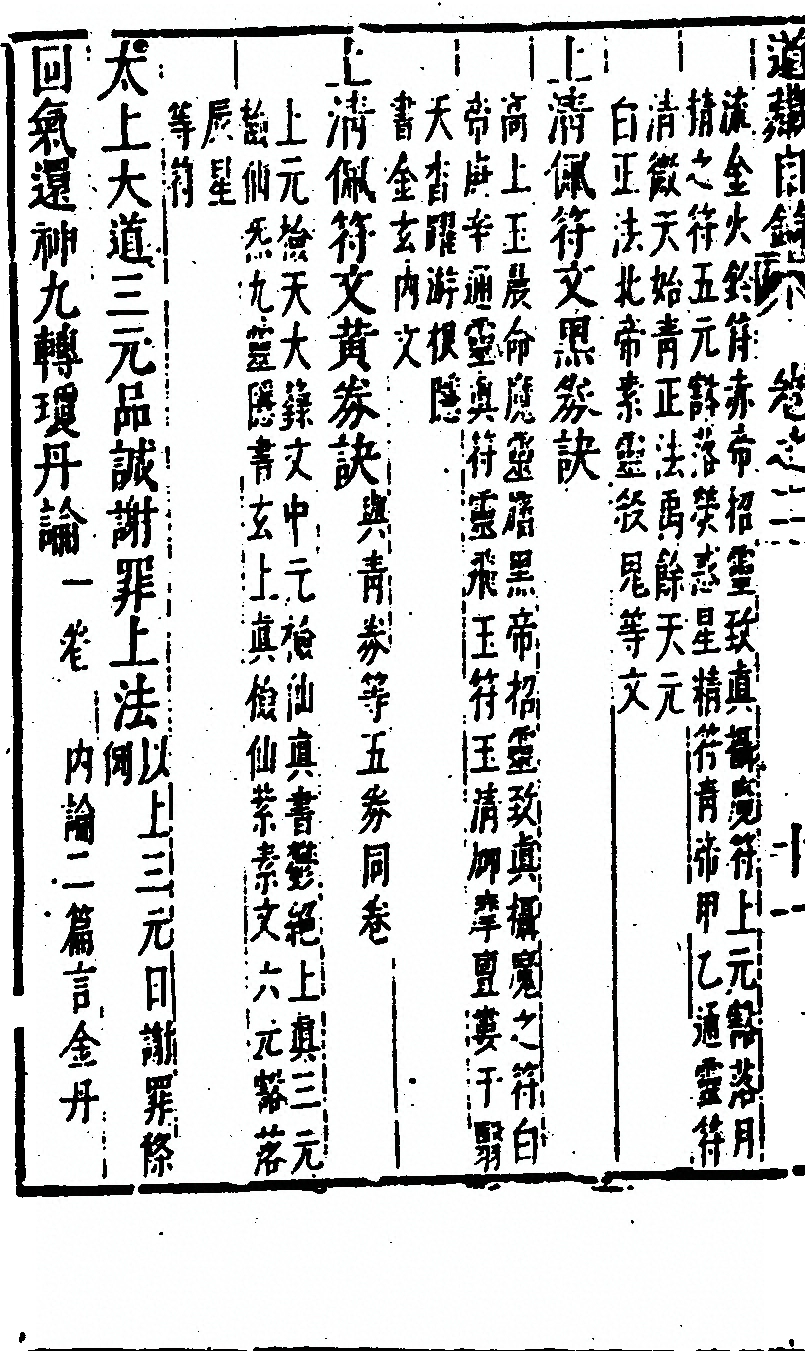 道藏目錄 卷之二 十一
流金火鈴符赤帝招靈致真攝魔符上元豁落月
精之符五元豁落熒惑星精符青帝甲乙通靈符
清微天始青正法禹餘天元
白正法北帝素靈殺鬼等文
上清佩符文黑券訣
高上玉晨命魔靈幡黑帝招靈致真攝魔之符白
帝庚辛通靈真符靈飛玉符玉清御輦亶婁千翳
天杳躍游根隱
書金玄內文
上清佩符文黃券訣 與青券等五券同卷
上元檢天大籙文中元檢仙真書鬱絕上真三元
檢仙炁九靈隱書玄上真檢仙紫素文六元豁落
辰星
等符
太上大道三元品誡謝罪上法 以上三元日謝罪條
例
回氣還神九轉瓊丹論一卷 內論二篇言金丹